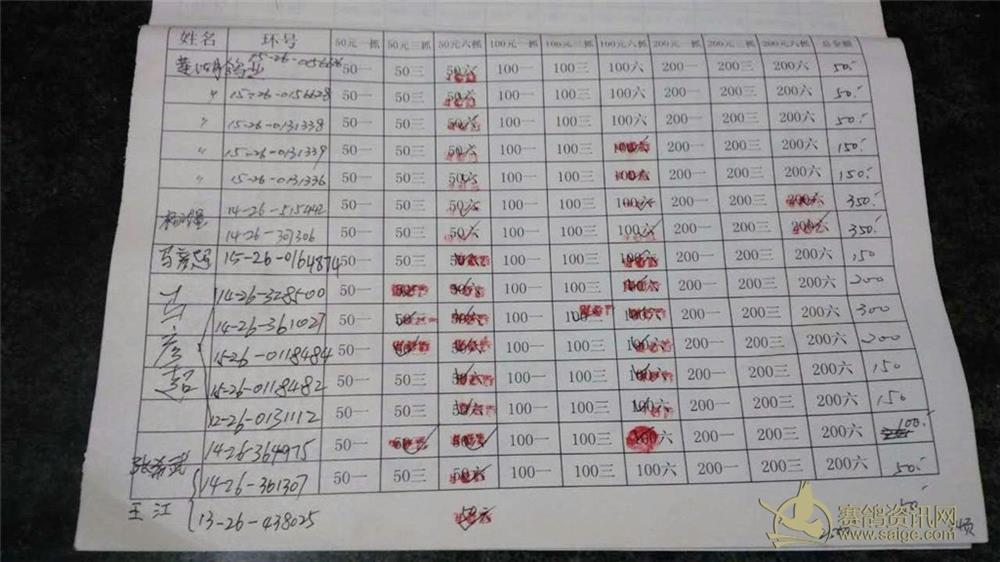 姓名 环号 50元一抓 50元三抓 50元六抓 100元一抓 100元三抓 100元六抓 200元一抓 200元三抓 200元六抓 总金额
15-26-0156626 50一 50三 50六 100一 100三 100六 200一 200三 200六 50.
〃 15-26-0156628 50一 50三 50六 100一 100三 100六 200一 200三 200六 50.
〃 15-26-0131338 50一 50三 50六 100一 100三 100六 200一 200三 200六 50.
〃 15-26-0131339 50一 50三 50六 100一 100三 100六 200一 200三 200六 150.
〃 15-26-0131336 50一 50三 50六 100一 100三 100六 200一 200三 200六 150.
14-26-515442 50一 50三 50六 100一 100三 100六 200一 200三 200六 350.
14-26-301306 50一 50三 50六 100一 100三 100六 200一 200三 200六 350.
15-26-0164874 50一 50三 50六 100一 100三 100六 200一 200三 200六 150
14-26-328500 50一 50三 50六 100一 100三 100六 200一 200三 200六 200
14-26-361027 50一 50三 50六 100一 100三 100六 200一 200三 200六 300
15-26-0118484 50一 50三 50六 100一 100三 100六 200一 200三 200六 200
15-26-0118482 50一 50三 50六 100一 100三 100六 200一 200三 200六 150
12-26-0131112 50一 50三 50六 100一 100三 100六 200一 200三 200六 150
14-26-364975 50一 50三 50六 100一 100三 100六 200一 200三 200六 100.
14-26-361307 50一 50三 50六 100一 100三 100六 200一 200三 200六 50.
王江 13-26-438025 50六 50.
赛鸽资讯网
www.saige.com